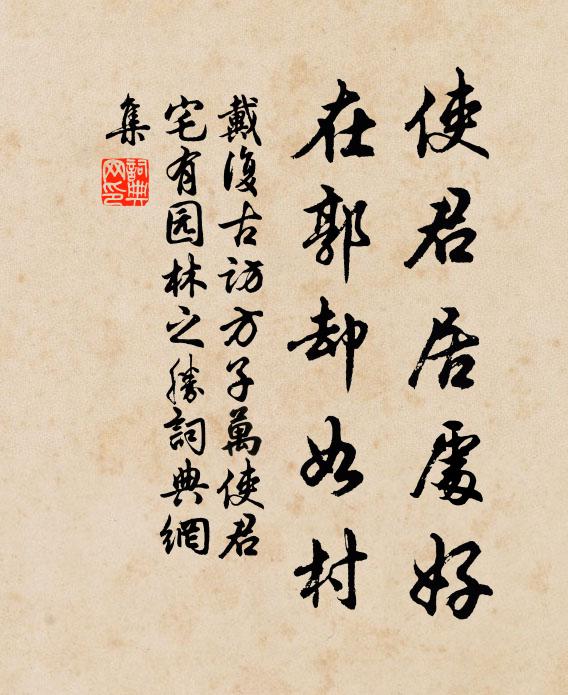 使君居處好
在郭却如村
戴復古訪方子萬使君
宅有园林之勝詞典網
集
詞典
网印